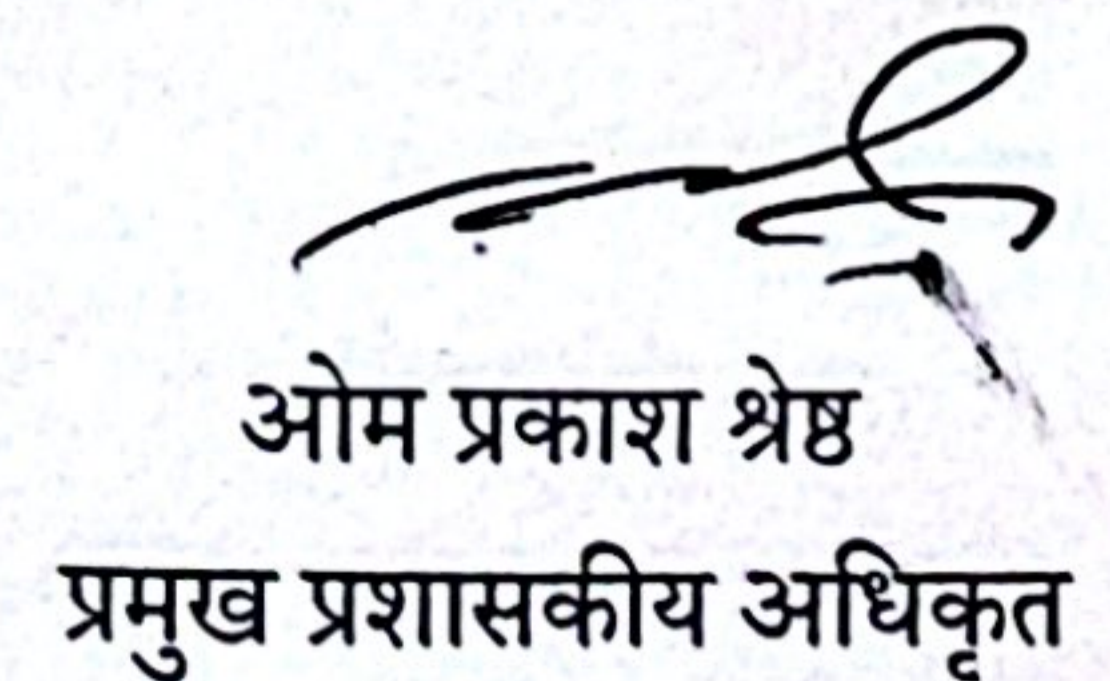 ओम प्रकाश श्रेष्ठ
प्रमुख प्रशासकीय अधिकृत